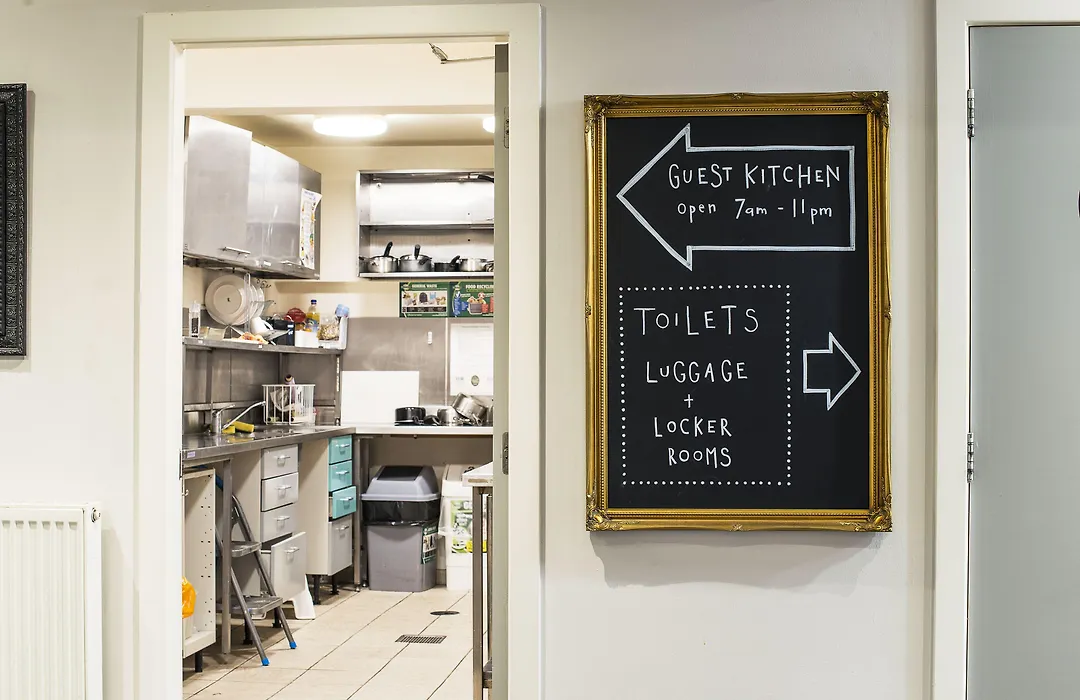 GUEST KITCHEN
open 7am - 11pm
TOILETS
LUGGAGE
+
LOCKER
ROOMS
GENERAL WASTE
FOOD RECYCLING